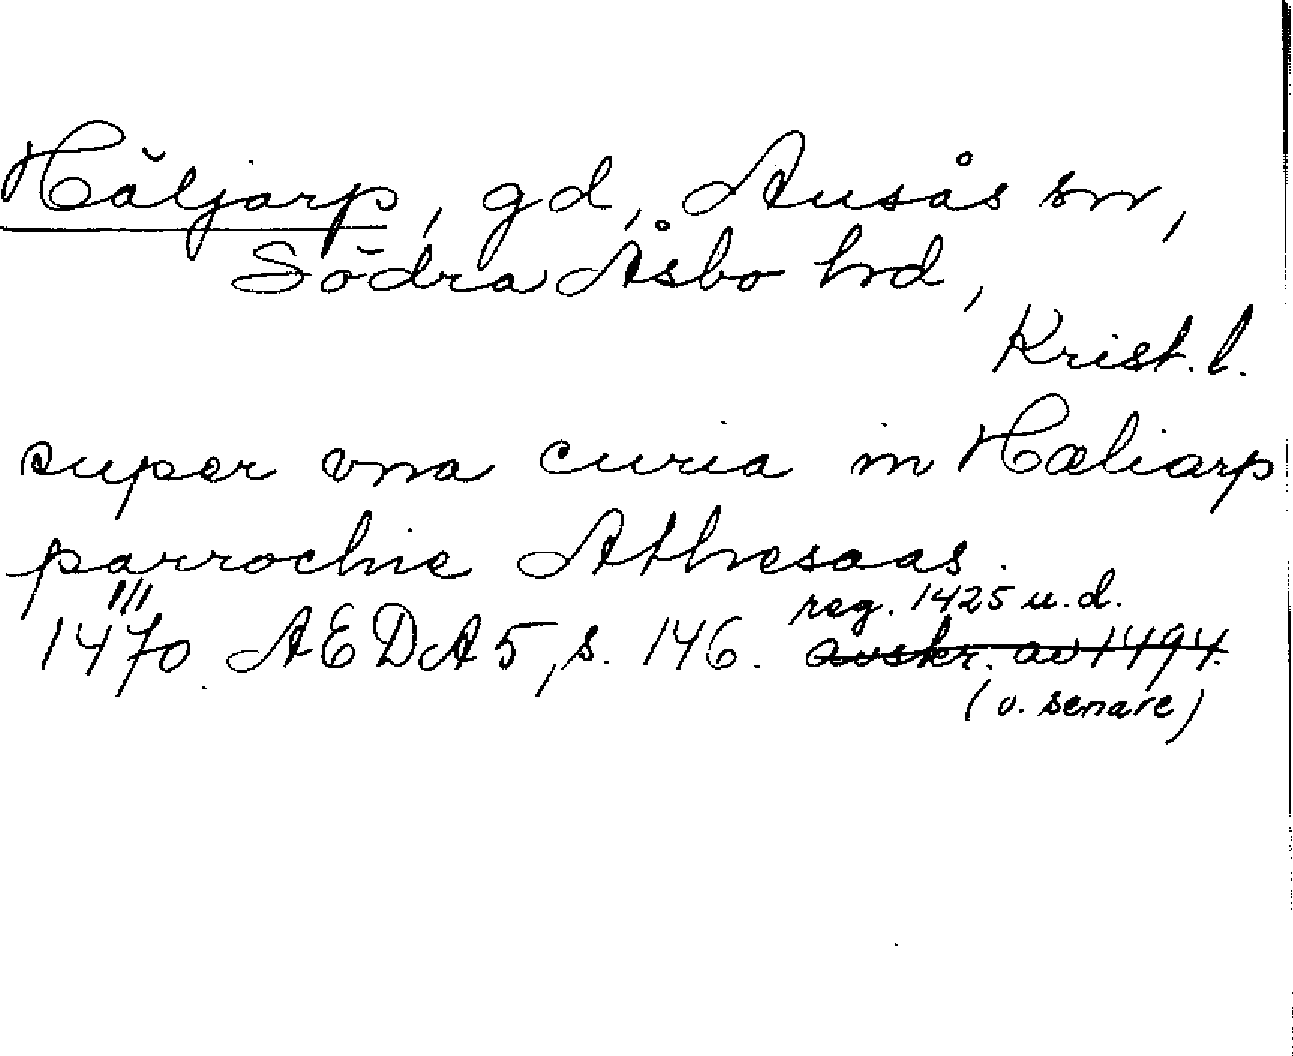 Häljarp, gd, Ausås sn,
Södra Åsbo hd,
Krist. l.
super vna curia in Hæliarp
parrochie Athesaas.
reg. 1425 u.d.
1470 AEDA 5, s. 146. avskr. av 1494.
(o. senare)